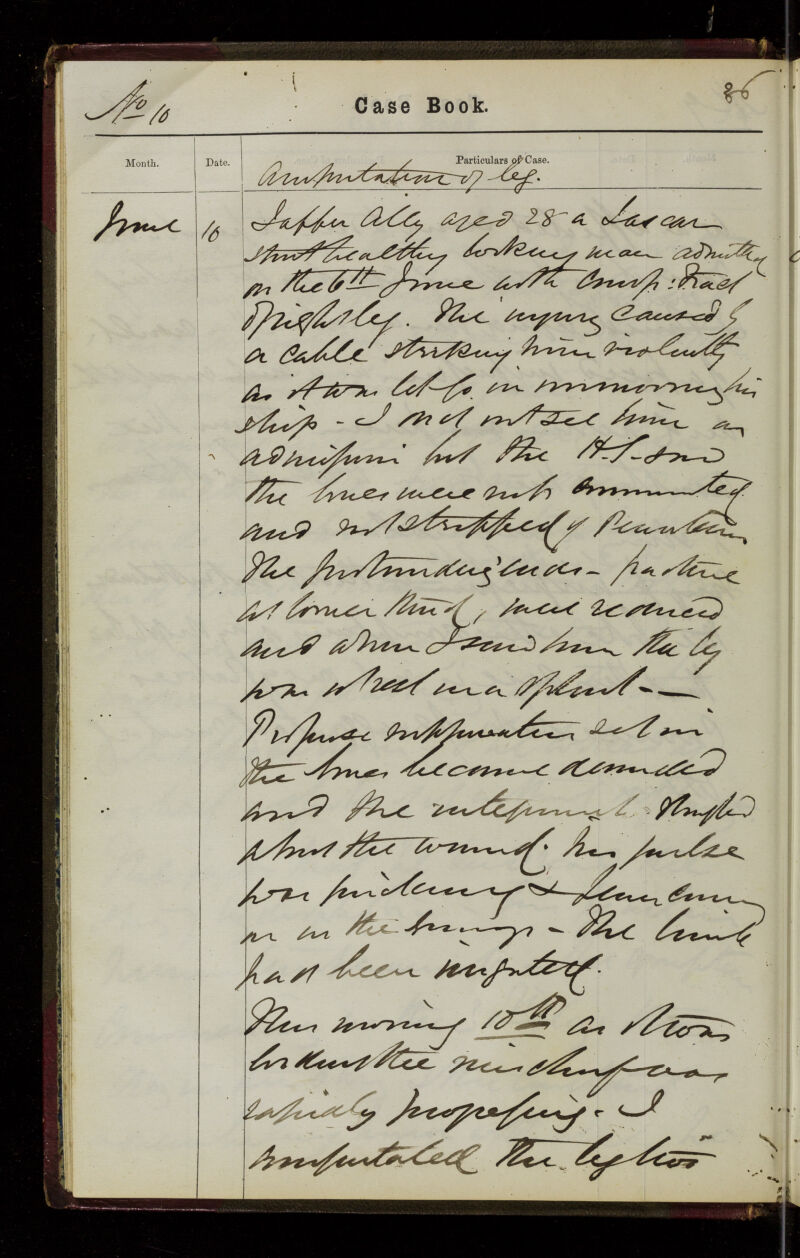 No 10
Case Book.
86
Month.
Date.
Particulars of Case.
Amputation of leg.
June 10 Jaffer Ally aged 28 a Lascar
stout healthy looking man admitted
on the 6th June with Comp: Fract
of right leg. The injury caused by
a cable striking him violently
as it was let go in unmooring his
ship - I did not see him on
admission but the H.S. said
the bones were not comminuted
and not stripped of Periosteum
The protruding ends - fracture
at lower third, were reduced
and when I saw him the leg
was placed in a splint -
Profuse suppuration set in
the bones became denuded
and the integument sloughed
about the wound. his pulse
was & fever came
on in the evenings - The limb
had been irrigated.
This morning 10th as it was
evident the mischief was
rapidly progressing - I
amputated the leg two